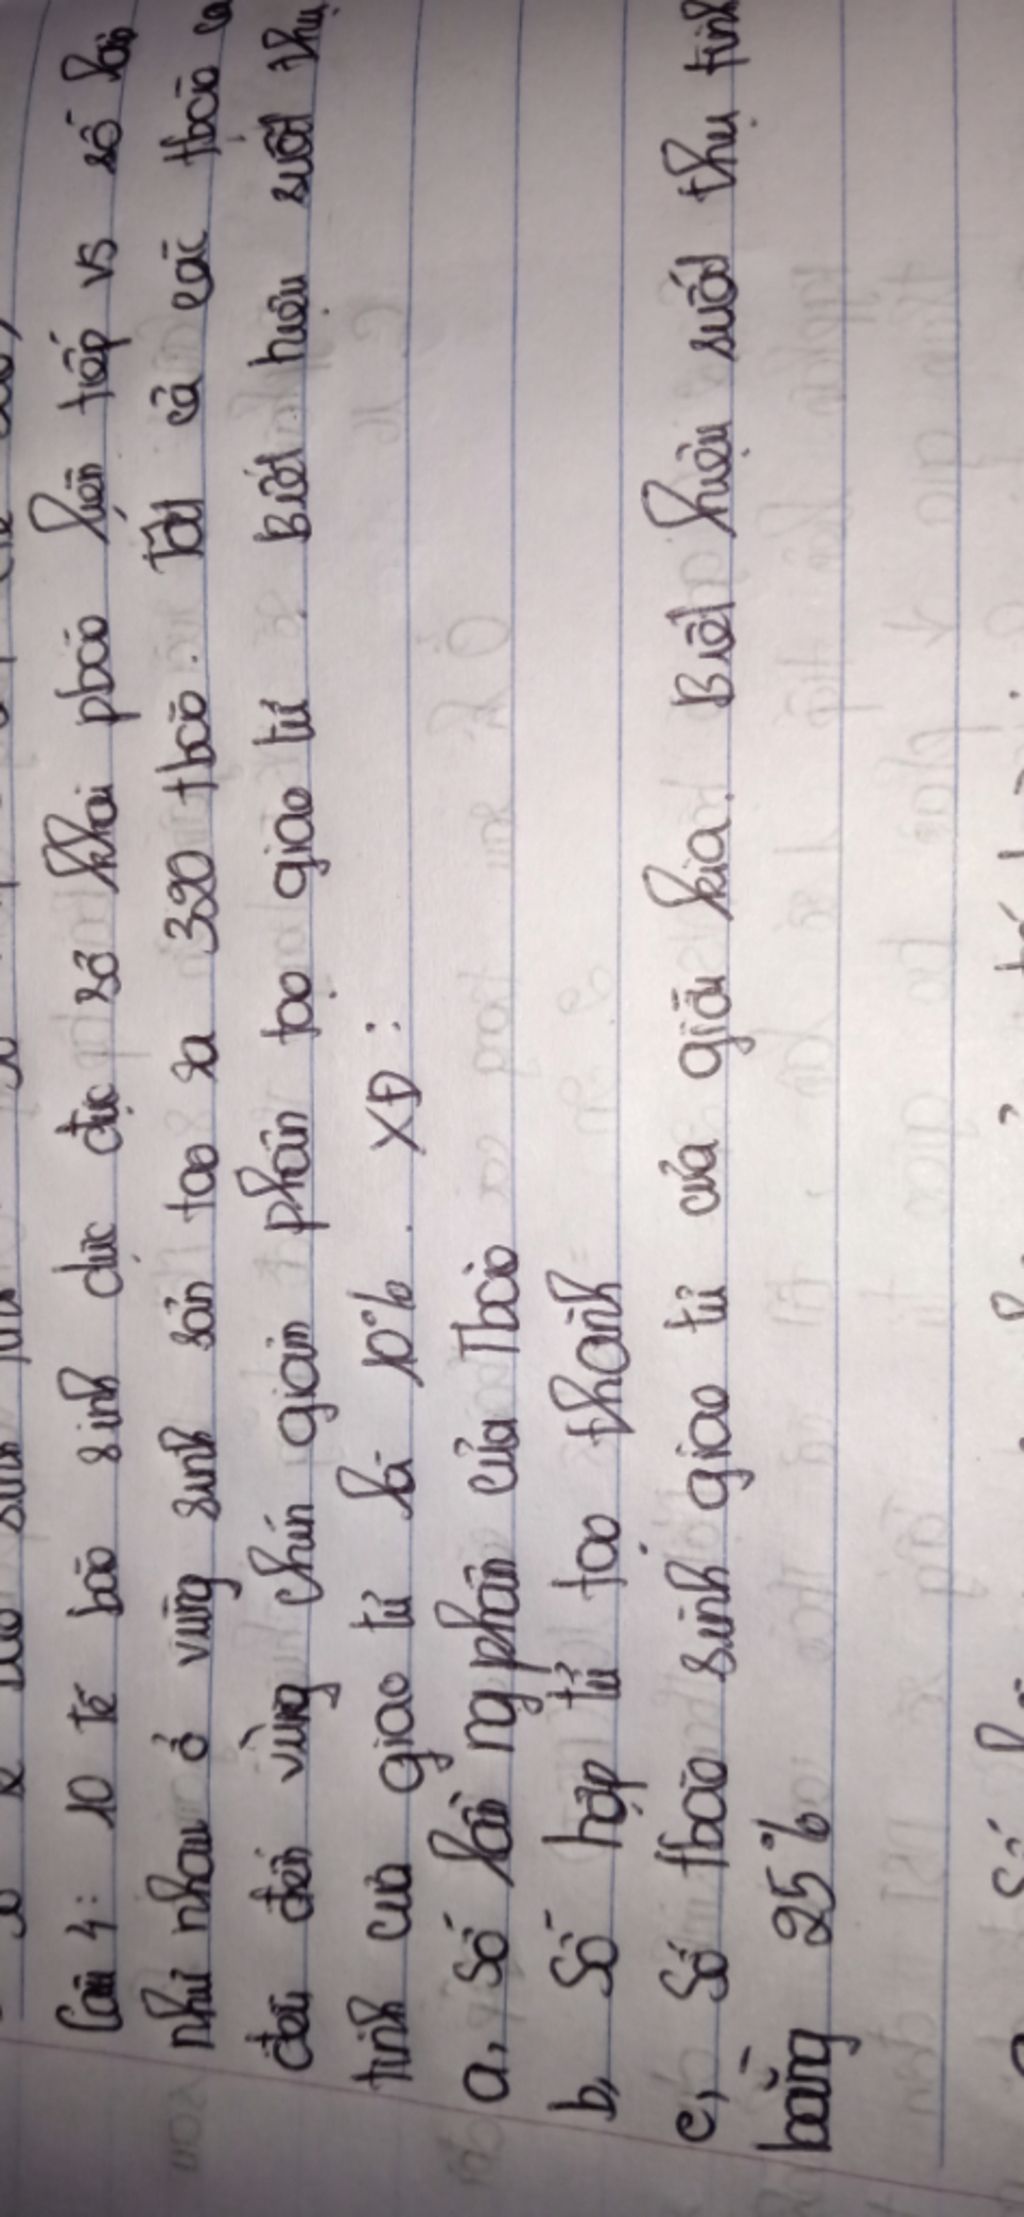 Câu 4: 10 tế bào sinh dục đực sơ khai pbào liên tiếp vs số lần
như nhau ở vùng sinh sản tao ra 320 tbào. Tất cả các tbào
đều đến vùng chín giảm phân tạo giao tử. Biết hiệu suất thụ
tinh của giao tử là 10%. XĐ:
a, Số lần ng phân của Tbào
b, Số hợp tử tao thành
c, Số tbào sinh giao tử của giới kia. Biết hiệu suất thụ tinh
bằng 25%